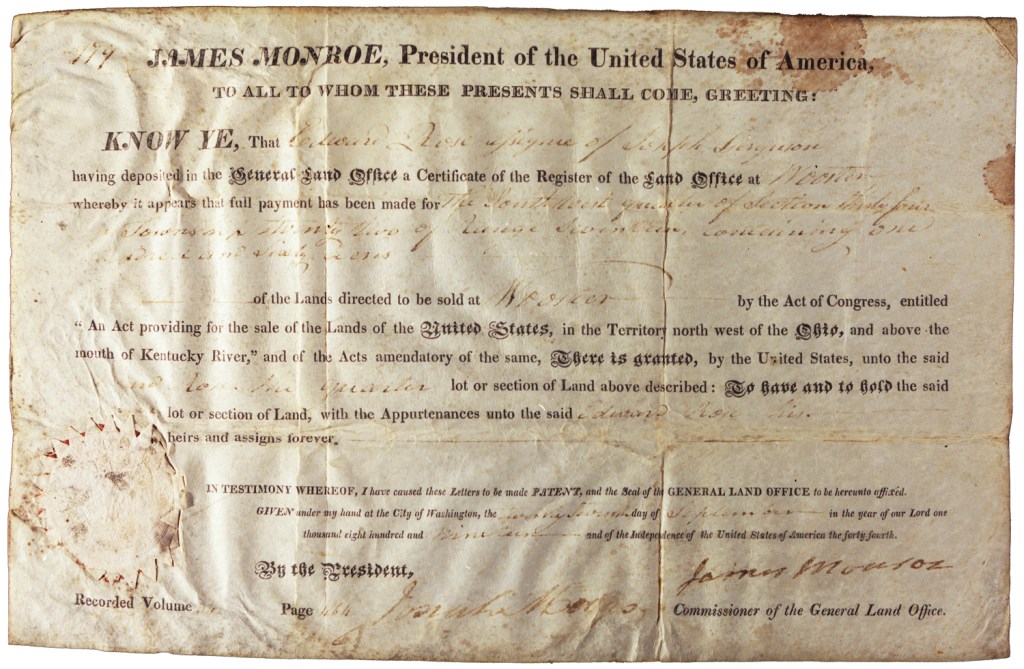 JAMES MONROE, President of the United States of America,
TO ALL TO WHOM THESE PRESENTS SHALL COME, GREETING:
KNOW YE, That Edward Rose assignee of Joseph Ferguson
having deposited in the General Land Office a Certificate of the Register of the Land Office at Wooster
whereby it appears that full payment has been made for The South West quarter of Section thirty four
Township twenty two of Range Seventeen, Containing one
hundred and Sixty Acres
of the Lands directed to be sold at Wooster by the Act of Congress, entitled
"An Act providing for the sale of the Lands of the United States, in the Territory north west of the Ohio, and above the
mouth of Kentucky River," and of the Acts amendatory of the same, There is granted, by the United States, unto the said
the quarter lot or section of Land above described: To have and to hold the said
lot or section of Land, with the Appurtenances unto the said Edward Rose his
heirs and assigns forever.
IN TESTIMONY WHEREOF, I have caused these Letters to be made PATENT, and the Seal of the GENERAL LAND OFFICE to be hereunto affixed.
GIVEN under my hand at the City of Washington, the day of September in the year of our Lord one
thousand eight hundred and nineteen and of the Independence of the United States of America the forty fourth.
By the President, James Monroe
Recorded Volume Page 464 Josiah Meigs Commissioner of the General Land Office.